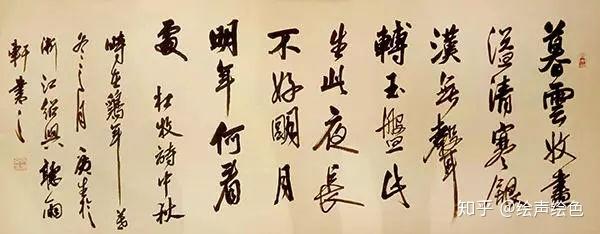 暮雲收盡
溢清寒銀
漢無聲
轉玉盤此
生此夜長
不好明月
明年何看
處 杜牧詩中秋
時在鷄年
冬月 生於
浙江紹興聽雨
軒書之
知乎 @绘声绘色